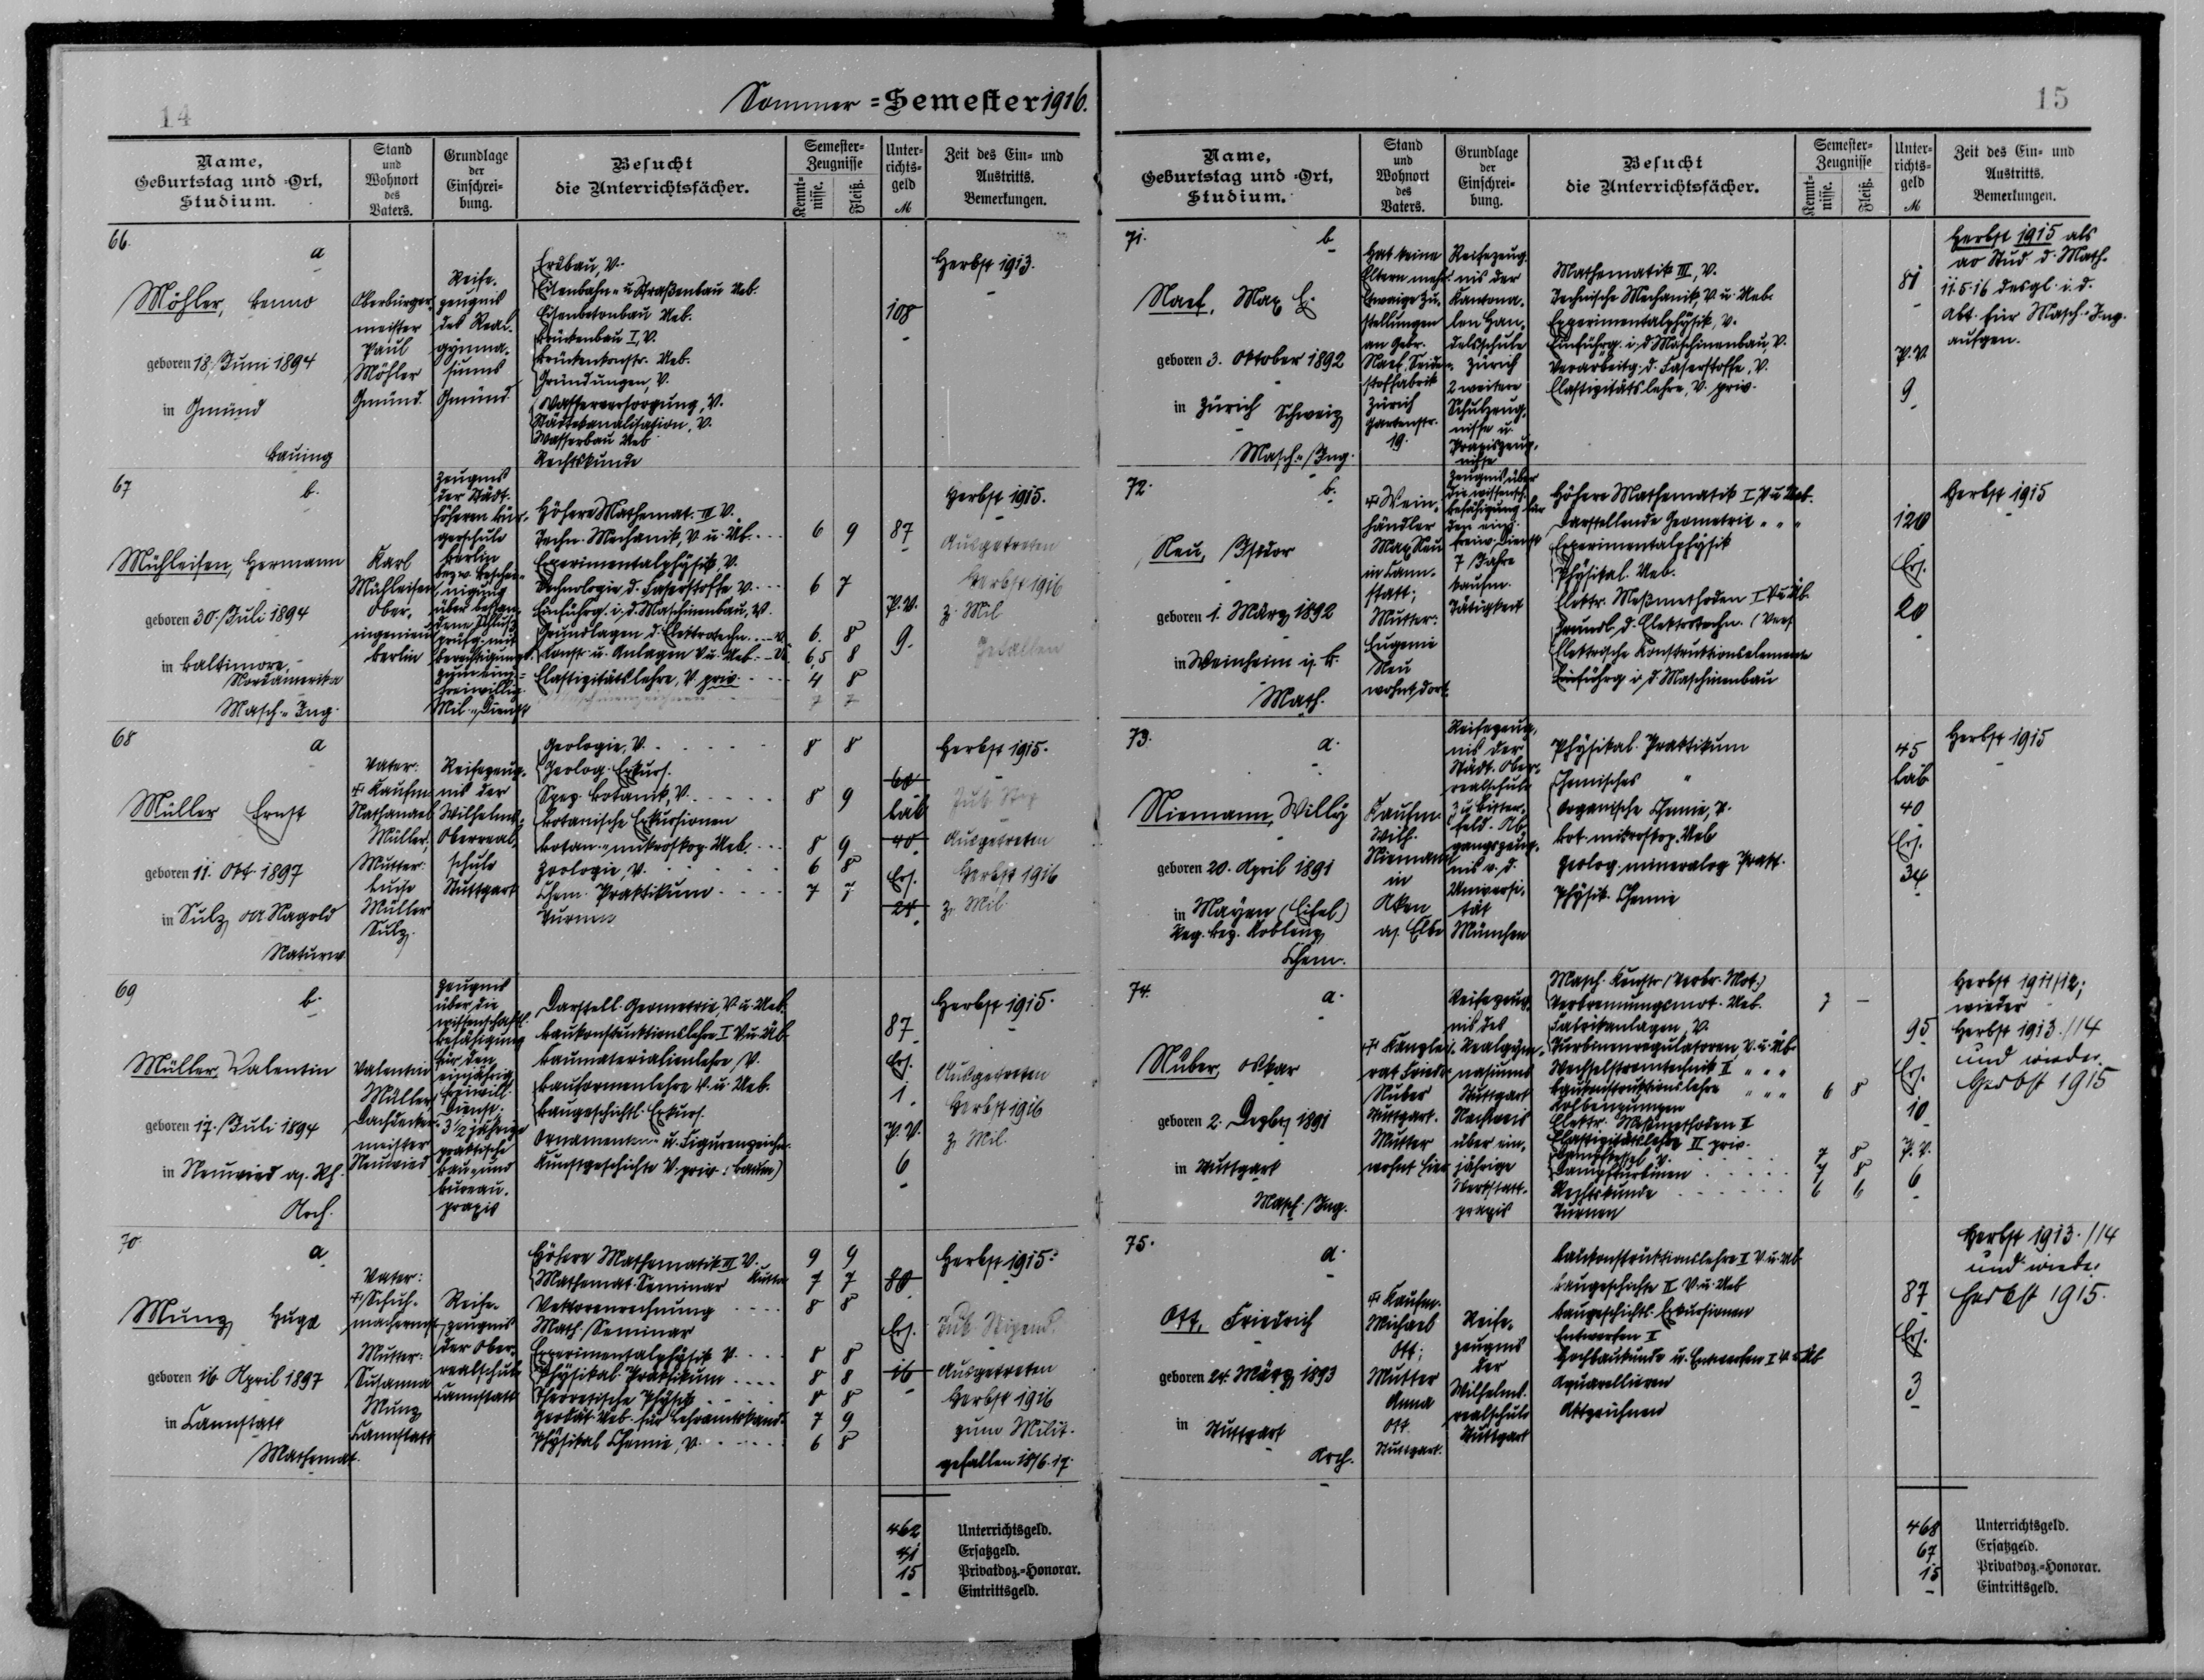 14
Sommer = Semester 1916.
Name,
Geburtstag und =Ort,
Studium.
Stand
und
Wohnort
des
Vaters.
Grundlage
der
Einschrei=
bung.
Besucht
die Unterrichtsfächer.
Semester=
Zeugnisse
Kennt=
nisse.
Fleiß.
Unter=
richts=
geld
M
Zeit des Ein= und
Austritts.
Bemerkungen.
66.
a
Möhler, Benno
geboren 18. Juni 1894
in Gmünd
Bauing
Oberbürger=
meister
Paul
Möhler
Gmünd.
Reife=
zeugnis
des Real=
gymna=
siums
Gmünd.
Erdbau, V.
Eisenbahn= u. Straßenbau Ueb.
Eisenbetonbau Ueb.
Brückenbau I, V.
Brückenkonstr. Ueb.
Gründungen, V.
Wasserversorgung, V.
Städtekanalisation, V.
Wasserbau Ueb.
Rechtskunde
108
Herbst 1913.
67
b.
Mühleisen, Hermann
geboren 30. Juli 1894
in Baltimore,
Nordamerika
Masch.=Ing.
Karl
Mühleisen
Ober=
ingenieur
Berlin
Zeugnis
der Städt.
höheren Bür=
gerschule
Berlin
bezw. Beschei=
nigung
über bestan=
dene Schluß=
prüfg. mit
Berechtigung
zum einj.=
freiwillig.
Mil.=Dienst
Höhere Mathemat. III V.
Techn. Mechanik, V. u. Üb. 6 9
Experimentalphysik, V.
Technologie d. Faserstoffe V. 6 7
Einführg. i. d. Maschinenbau, V.
Grundlagen d. Elektrotechn. V. 6. 8
Konstr. u. Anlagen V. u. Ueb. 6,5 8
Elastizitätslehre, V. priv. 4 8
Maschinenzeichnen 7 7
87
P. V.
9.
Herbst 1915.
Ausgetreten
Herbst 1916
z. Mil
Gefallen
68
a
Müller Ernst
geboren 11. Okt. 1897
in Sulz OA Nagold
Naturw.
Vater:
† Kaufm.
Nathanael
Müller.
Mutter:
Luise
Müller
Sulz.
Reifezeug=
nis der
Wilhelms=
Oberreal=
schule
Stuttgart
Geologie, V. 8 8
Geolog. Exkurs.
Spez. Botanik, V. 8 9
Botanische Exkursionen
Botan.=mikroskop. Ueb. 8 9
Zoologie, V. 6 8
Chem. Praktikum 7 7
Turnen
60
Lab
40
Ers.
24
Herbst 1915.
Ausgetreten
Herbst 1916
z. Mil.
69
b.
Müller, Valentin
geboren 17. Juli 1894
in Neuwied a. Rh.
Arch.
Valentin
Müller
Dachdecker=
meister
Neuwied
Zeugnis
über die
wissenschaftl.
Befähigung
für den
einjährig
freiwill.
Dienst;
3½ jährige
praktische
Bau= und
Bureau=
praxis
Darstell. Geometrie, V. u. Ueb.
Baukonstruktionslehre I V. u. Üb.
Baumaterialienlehre, V.
Bauformenlehre V. u. Ueb.
Baugeschichtl. Exkurs.
Ornamenten= u. Figurenzeichn.
Kunstgeschichte V. priv. (Baum)
87
Ers.
1.
P. V.
6
Herbst 1915.
Ausgetreten
Herbst 1916
z. Mil.
70.
a
Munz Hugo
geboren 16 April 1897
in Cannstatt
Mathemat.
Vater:
† Schuh=
machermstr.
Mutter:
Susanna
Munz
Cannstatt
Reife=
zeugnis
der Ober=
realschule
Cannstatt
Höhere Mathematik III V. 9 9
Mathemat. Seminar Kutta 7 7
Vektorenrechnung 8 8
Math. Seminar
Experimentalphysik V. 8 8
Physikal. Praktikum 8 8
Theoretische Physik 8 8
Geodät. Ueb. für Lehramtskand. 7 9
Physikal. Chemie, V. 6 8
80
Ers.
16
Herbst 1915.
Jub. Stipend.
Ausgetreten
Herbst 1916
zum Milit.
gefallen 18/6.17.
462 Unterrichtsgeld.
41 Ersatzgeld.
15 Privatdoz.=Honorar.
– Eintrittsgeld.
15
Name,
Geburtstag und =Ort,
Studium.
Stand
und
Wohnort
des
Vaters.
Grundlage
der
Einschrei=
bung.
Besucht
die Unterrichtsfächer.
Semester=
Zeugnisse
Kennt=
nisse.
Fleiß.
Unter=
richts=
geld
M
Zeit des Ein= und
Austritts.
Bemerkungen.
71.
b
Naef, Max E.
geboren 3. Oktober 1892
in Zürich Schweiz
Masch.=Ing.
Hat keine
Eltern mehr.
Etwaige Zu=
stellungen
an Gebr.
Naef, Seiden=
stoffabrik
Zürich
Gartenstr.
19.
Reifezeug=
nis der
Kantona=
len Han=
delsschule
Zürich
2 weitere
Schulzeug=
nisse u.
Praxiszeug=
nisse
Mathematik III, V.
Technische Mechanik, V. u. Ueb.
Experimentalphysik, V.
Einführg. i. d. Maschinenbau, V.
Verarbeitg. d. Faserstoffe, V.
Elastizitätslehre, V. priv.
81
P. V.
9
Herbst 1915 als
ao Stud. d. Math.
11.5.16 desgl. i. d.
Abt. für Masch.=Ing.
aufgen.
72.
b.
Neu, Isidor
geboren 1. März 1892
in Weinheim i. B.
Math.
† Wein=
händler
Max Neu
in Cann=
statt;
Mutter:
Eugenie
Neu
wohnt dort
Zeugnis über
die wissensch.
Befähigung für
den einj.
freiw. Dienst
7 Jahre
kaufm.
Tätigkeit
Höhere Mathematik I, V. u. Ueb.
Darstellende Geometrie " " "
Experimentalphysik
Physikal. Ueb.
Elektr. Meßmethoden I V. u. Üb.
Grundl. d. Elektrotechn.
Elektrische Konstruktionselemente
Einführg. i. d. Maschinenbau
120
Ers.
20
Herbst 1915
73.
a.
Niemann, Willy
geboren 20. April 1891
in Mayen (Eifel)
Reg. Bez. Koblenz
Chem.
Kaufm.
Wilh.
Niemann
in
Aken
a/. Elbe
Reifezeug=
nis der
Städt. Ober=
realschule
z. u. Bitter=
feld. Ab=
gangszeug=
nis v. d.
Universi=
tät
München
Physikal. Praktikum
Chemisches "
Organische Chemie, V.
Bot. mikroskop. Ueb
Geolog. mineralog. Prakt.
Physik. Chemie
45
Lab
40
Ers.
34
Herbst 1915
74.
a.
Nuber, Oskar
geboren 2. Dezbr. 1891
in Stuttgart
Masch.=Ing.
† Kanzlei=
rat Friedr.
Nuber
Stuttgart.
Mutter
wohnt hier
Reifezeug=
nis des
Realgym=
nasiums
Stuttgart
Nachweis
über ein=
jährige
Werkstatt=
praxis
Masch. Konstr. (Verbr. Mot.)
Verbrennungsmot. Ueb. 7 –
Fabrikanlagen, V.
Turbinenregulatoren V. u. Üb.
Wechselstromtechnik II " " "
Baukonstruktionslehre " " " 6 8
Kolbenpumpen
Elektr. Meßmethoden I
Elastizitätslehre II priv.
Dampfkessel V. 7 8
Dampfturbinen 7 8
Rechtskunde 6 6
Turnen
95
Ers.
10
P. V.
6
Herbst 1911/12;
wieder
Herbst 1913./14
und wieder
Herbst 1915
75.
a.
Ott, Friedrich
geboren 24. März 1893
in Stuttgart
Arch.
† Kaufm.
Michael
Ott;
Mutter
Anna
Ott
Stuttgart.
Reife=
zeugnis
der
Wilhelms=
realschule
Stuttgart
Baukonstruktionslehre II V. u. Üb
Baugeschichte II V. u. Ueb
Baugeschichtl. Exkursionen
Entwerfen I
Hochbaukunde u. Entwerfen I V. u. Üb
Aquarellieren
Aktzeichnen
87
Ers.
3
Herbst 1913./14
und wieder
Herbst 1915.
468 Unterrichtsgeld.
67 Ersatzgeld.
15 Privatdoz.=Honorar.
– Eintrittsgeld.